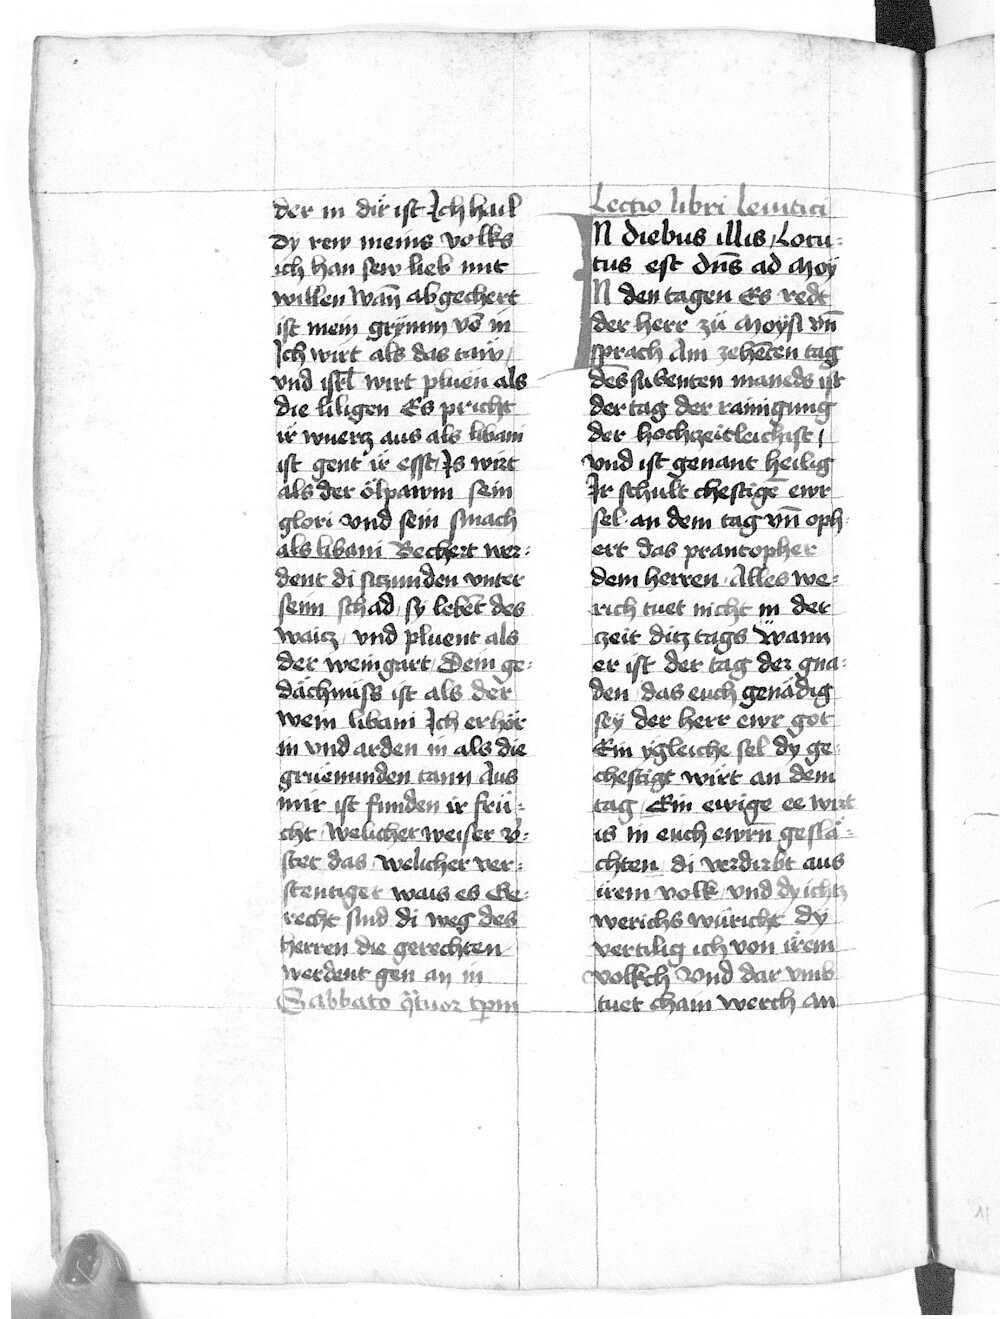 der in dir ist Ich hail
dy rew meins volks
ich han sew lieb mit
willen Wañ abgechert
ist mein grymm võ in
Ich wirt als das taw /
vnd isrl̄ wirt pluen als
die liligen Es pricht
ir wuercz aus als libani
ist gent ir esst / Is wirt
als der ölpawm sein
glori vnd sein smach
als libani Bechert wer-
dent di siczunden vnter
seim schad / sy lebēt des
waicz / vnd pluent als
der weingart / Dein ge-
dächnuss ist als der
wein libani Ich erhör
in vnd arden in als die
gruenunden tann Aus
mir ist funden ir frü-
cht / Welicher weiser v̈-
stet das welicher ver-
stentiger wais es Ge-
recht sind di weg des
herren die gerechten
werdent gen an in
Sabbato q̄tuor tp̄m
Lectio libri leuitici
IN diebus illis / Locu-
tus est dn̄s ad Moy
IN den tagen Es redt
der herr zü Moysi vn̄
sprach Am zehēten tag
des sibenten maneds ist
der tag der rainigung
der hochzeitleichist /
vnd ist genant heilig
Ir schult chestigē ewr
sel an dem tag vn̄ oph-
ert das prantopher
dem herren / Alles we-
rich tuet nicht in der
zeit ditz tags Wann
er ist der tag der gna-
den / das euch genädig
sey der herr ewr got
Ein ygleiche sel dy ge-
chestigt wirt an dem
tag / Ein ewige ee wirt
is in euch ewrn geslä-
chten / di verdirbt aus
irem volk / vnd dy ichtz
werichs würicht dy
vertilig ich von irem
volkch Vnd dar vmb
tuet chain werch an